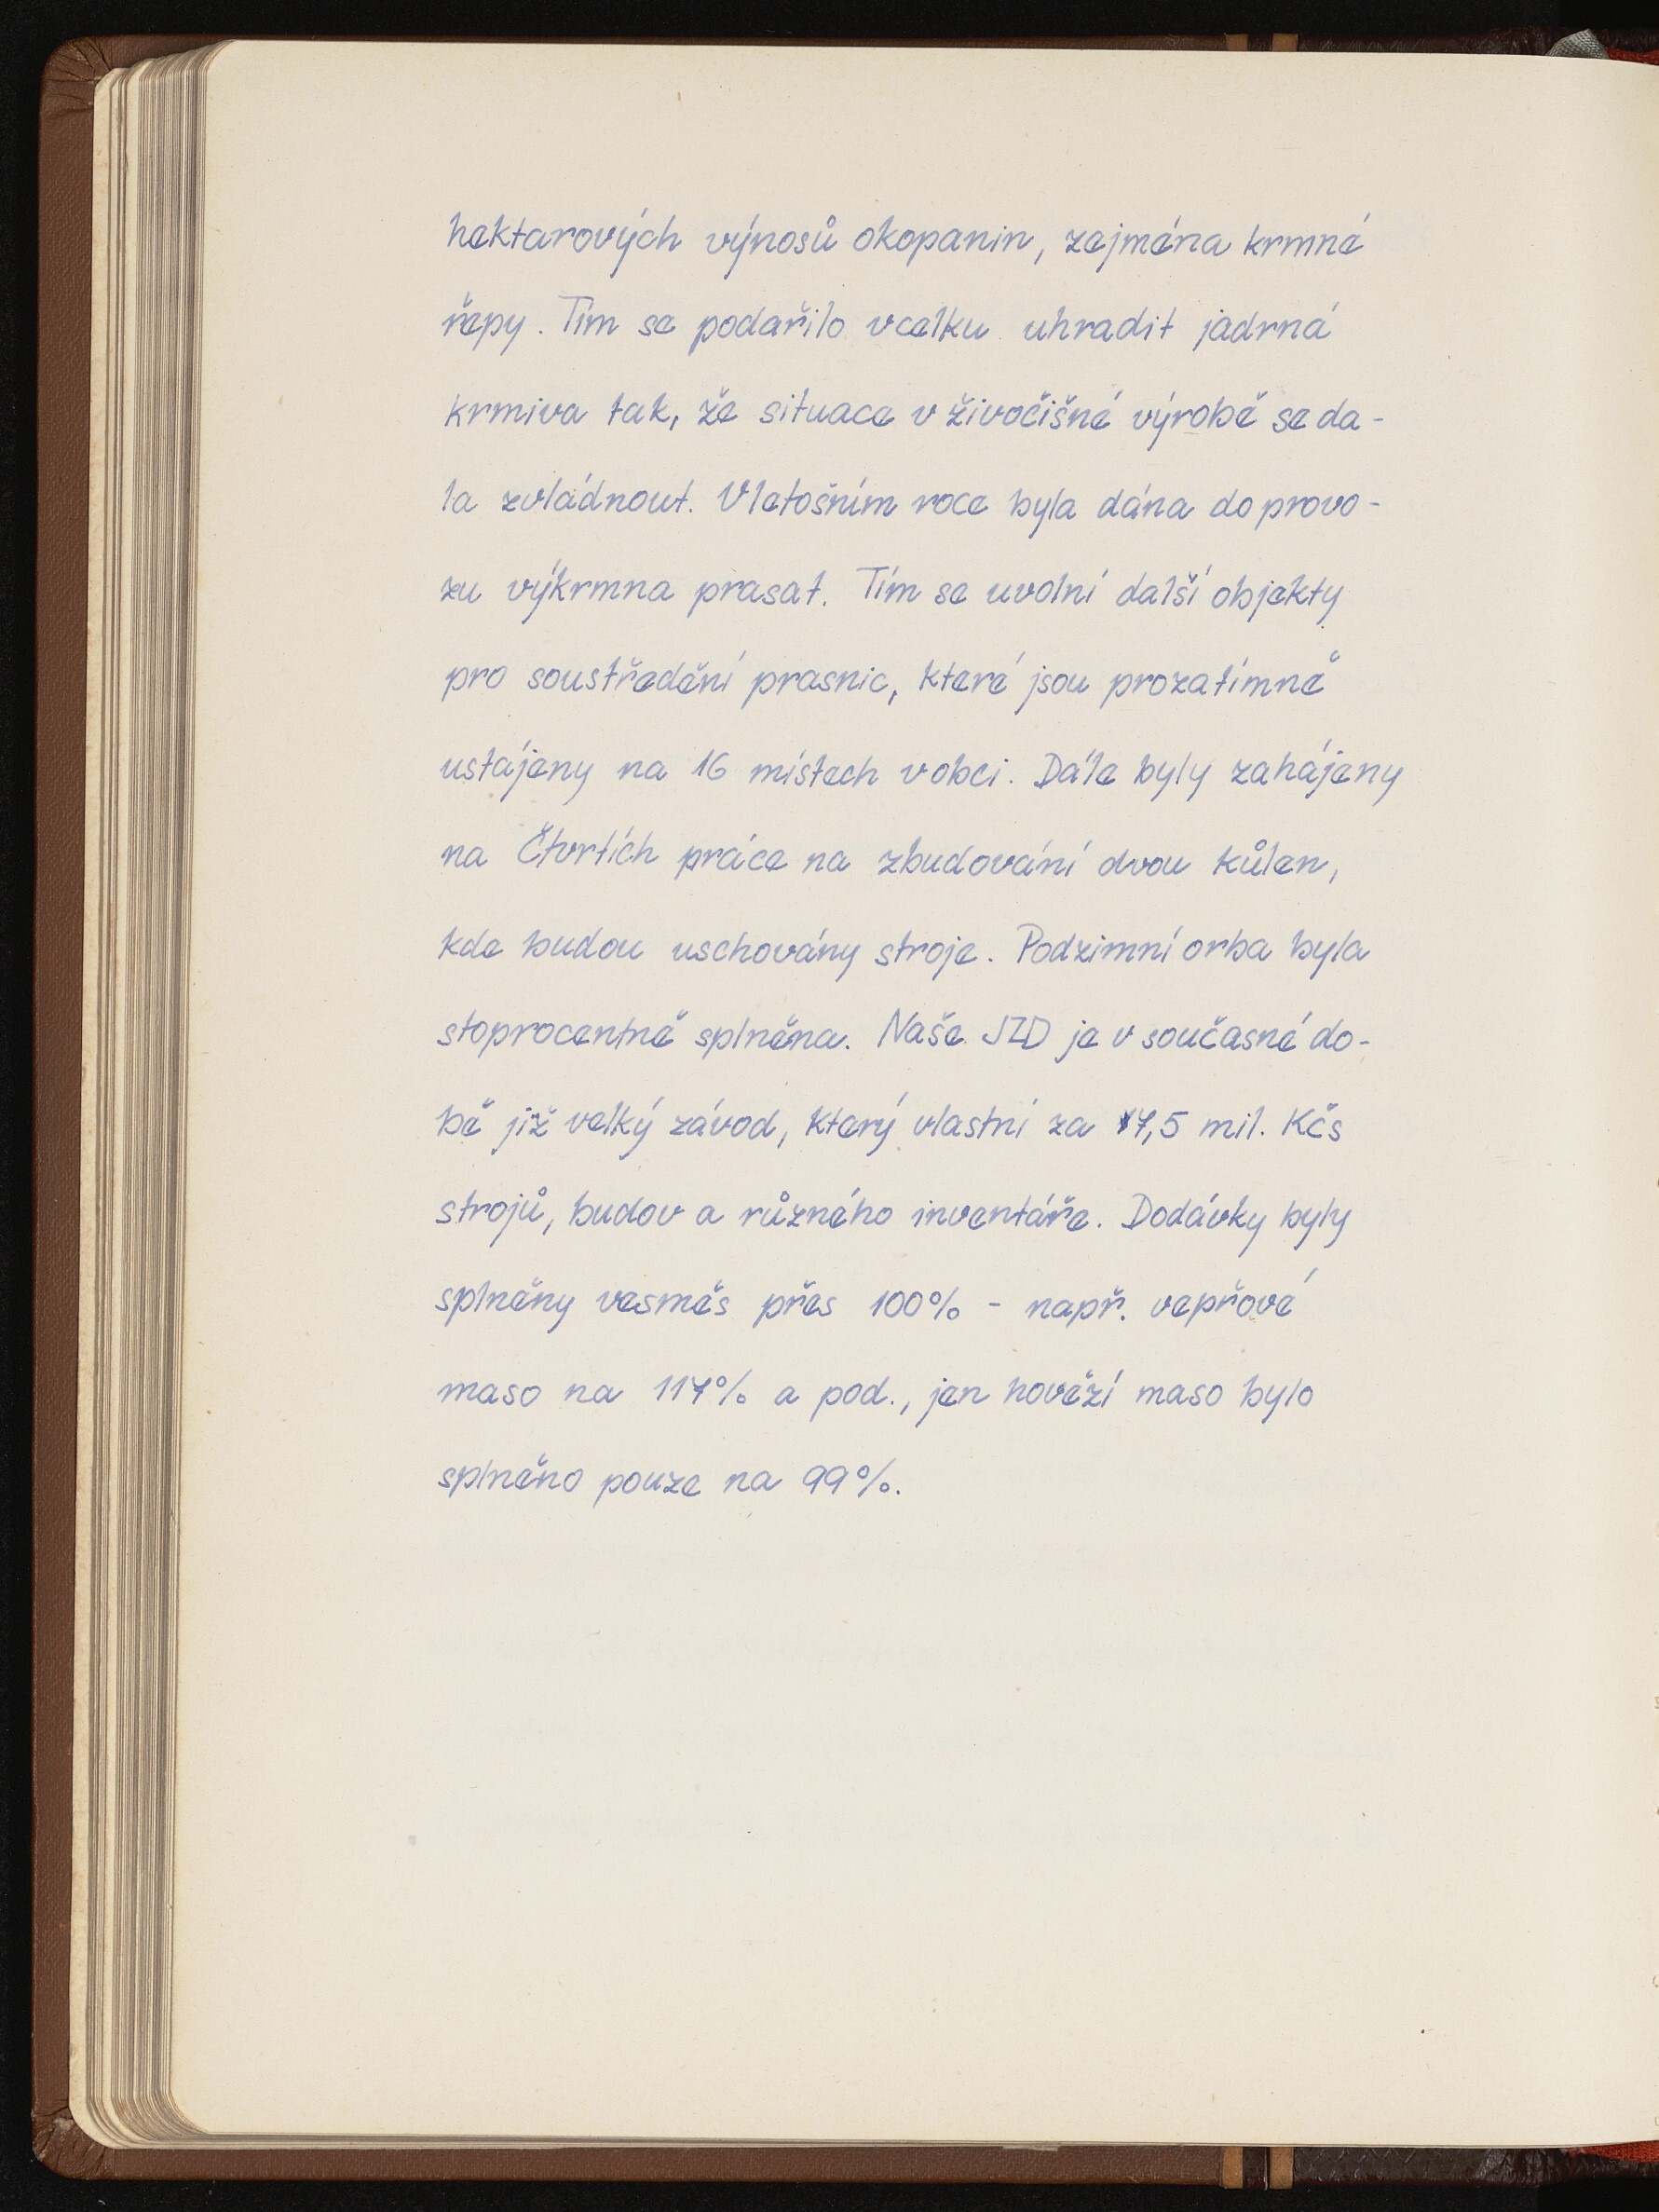 hektarových výnosů okopanin, zejména krmné
řepy. Tím se podařilo vcelku uhradit jadrná
krmiva tak, že situace v živočišné výrobě se da-
la zvládnout. V letošním roce byla dána do provo-
zu výkrmna prasat. Tím se uvolní další objekty
pro soustředění prasnic, které jsou prozatímně
ustájeny na 16 místech v obci. Dále byly zahájeny
na Čtvrtích práce na zbudování dvou kůlen,
kde budou uschovány stroje. Podzimní orba byla
stoprocentně splněna. Naše JZD je v současné do-
bě již velký závod, který vlastní za 17,5 mil. Kčs
strojů, budov a různého inventáře. Dodávky byly
splněny vesměs přes 100% - např. vepřové
maso na 117% a pod., jen hovězí maso bylo
splněno pouze na 99%.